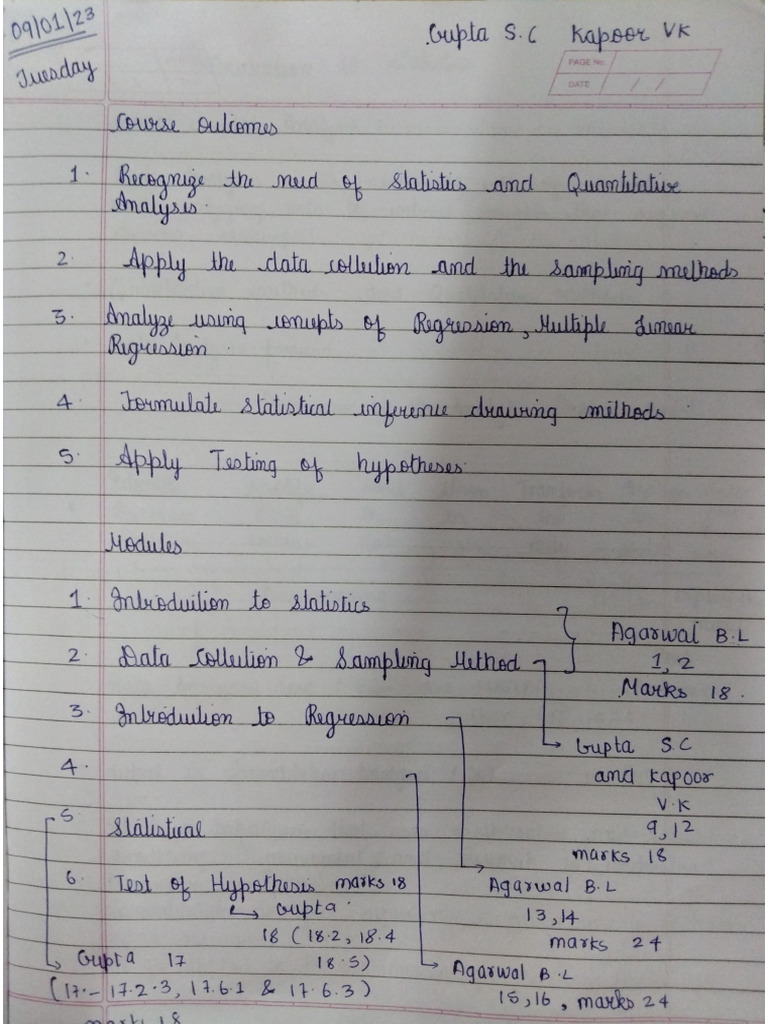 09/01/23
Tuesday
Gupta S.C Kapoor VK
PAGE No.
DATE / /
Course Outcomes
1. Recognize the need of Statistics and Quantitative
Analysis.
2. Apply the data collection and the sampling methods
3. Analyze using concepts of Regression, Multiple Linear
Regression.
4. Formulate statistical inference drawing methods.
5. Apply Testing of hypotheses.
Modules
1. Introduction to statistics
2. Data Collection & Sampling Method
Agarwal B.L
1, 2
Marks 18.
3. Introduction to Regression
Gupta S.C
and Kapoor
V.K
9, 12
marks 18
4.
5. Statistical
6. Test of Hypothesis marks 18
Gupta.
18 (18.2, 18.4
18.5)
Agarwal B.L
13, 14
marks 24
Gupta 17
(17.- 17.2.3, 17.6.1 & 17.6.3)
Agarwal B.L
15, 16, marks 24
marks 18